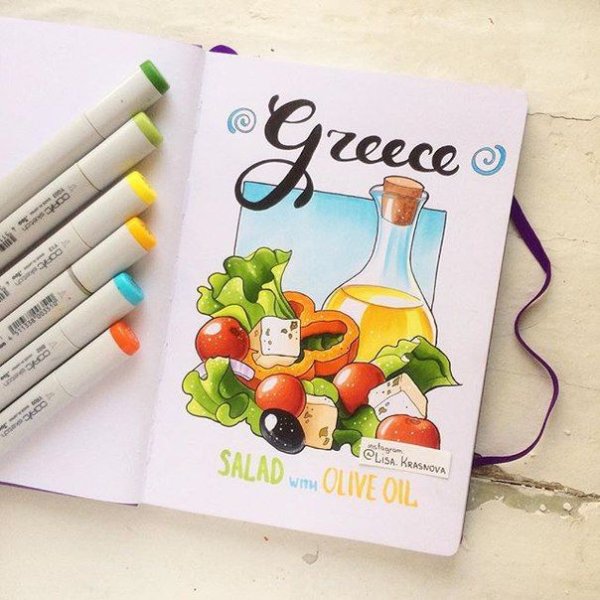 Greece
instagram:
@Lisa.Krasnova
SALAD WITH OLIVE OIL
COPIC sketch
COPIC sketch
COPIC sketch
COPIC sketch